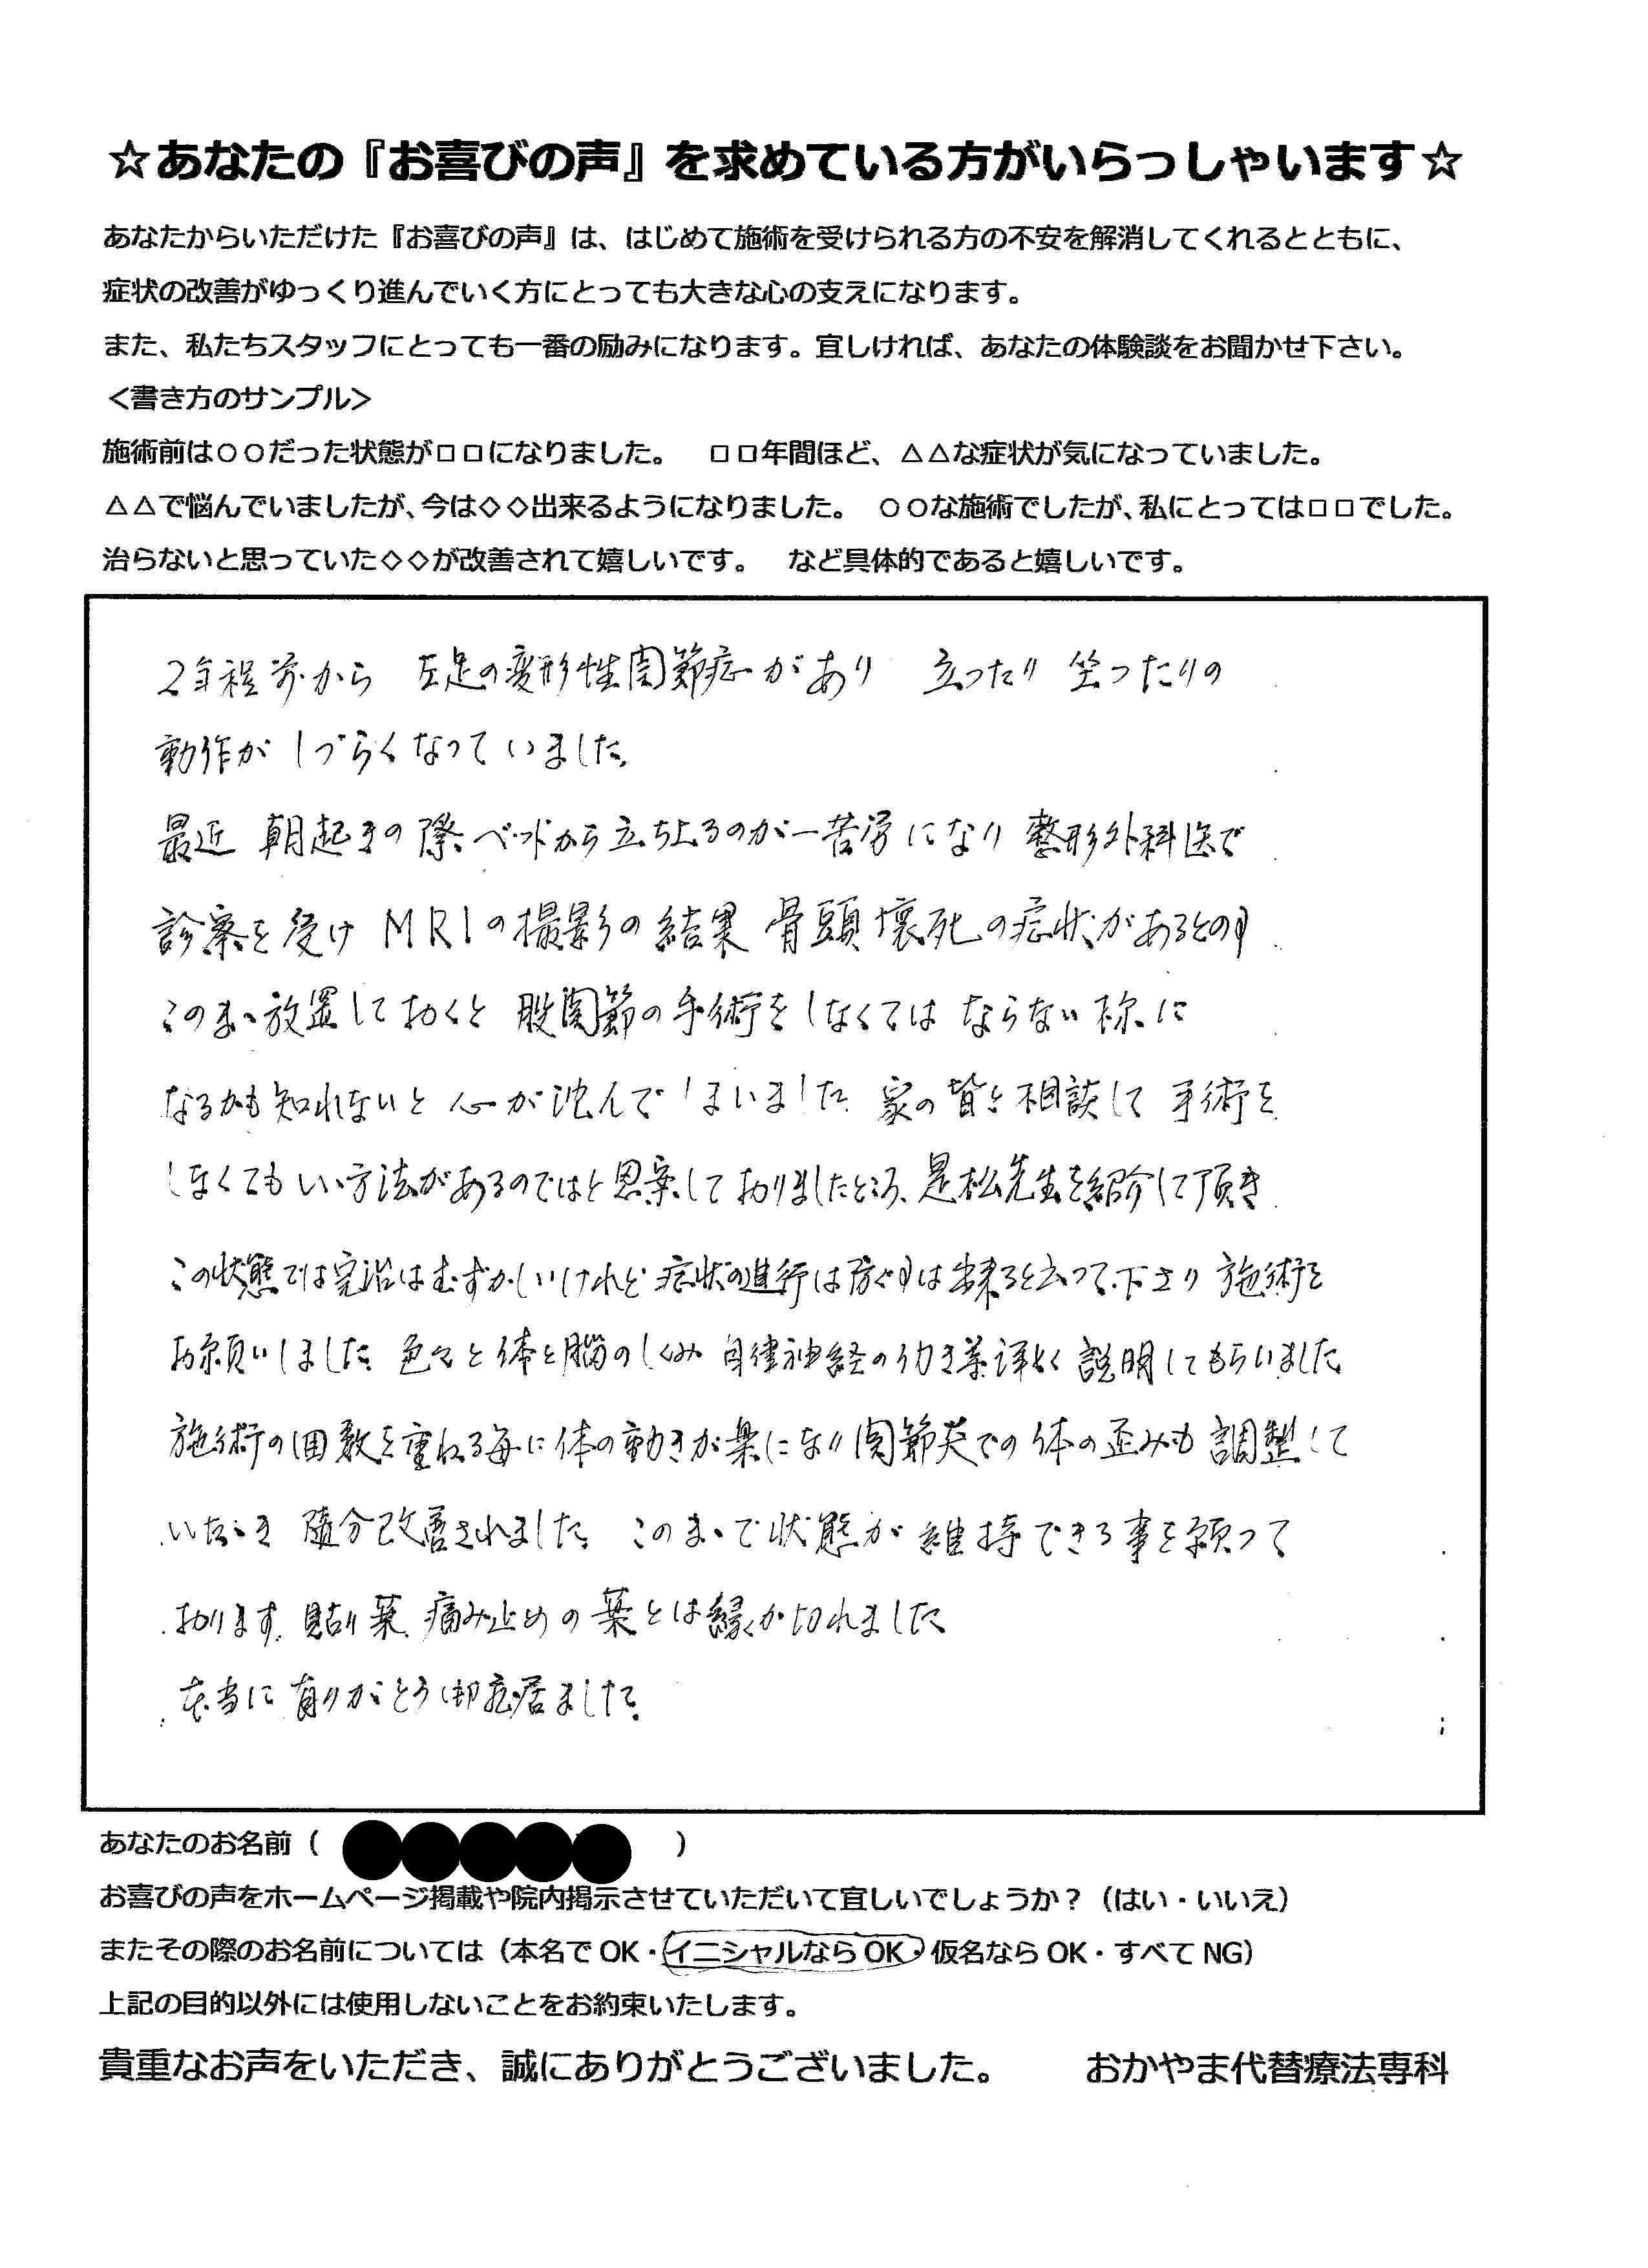 ☆あなたの『お喜びの声』を求めている方がいらっしゃいます☆
あなたからいただけた『お喜びの声』は、はじめて施術を受けられる方の不安を解消してくれるとともに、
症状の改善がゆっくり進んでいく方にとっても大きな心の支えになります。
また、私たちスタッフにとっても一番の励みになります。宜しければ、あなたの体験談をお聞かせ下さい。
＜書き方のサンプル＞
施術前は○○だった状態が□□になりました。　□□年間ほど、△△な症状が気になっていました。
△△で悩んでいましたが、今は◇◇出来るようになりました。　○○な施術でしたが、私にとっては□□でした。
治らないと思っていた◇◇が改善されて嬉しいです。　など具体的であると嬉しいです。
2年程前から 左足の変形性関節症があり 立ったり 坐ったりの
動作が しづらくなっていました。
最近 朝起きの際 ベッドから立ち上るのが一苦労になり 整形外科医で
診察を受け MRIの撮影の結果 骨頭壊死の症状があるとの事
このまゝ放置しておくと 股関節の手術をしなくては ならない様に
なるかも知れないと 心が沈んでしまいました。 家の皆と相談して 手術を
しなくてもいい方法があるのではと思案しておりましたところ、是松先生を紹介して頂き
この状態では完治はむずかしいけれど 症状の進行は防ぐ事は出来ると云って下さり 施術を
お願いしました。 色々と体と脳のしくみ 自律神経の働き等詳しく 説明してもらいました
施術の回数を重ねる毎に体の動きが楽になり 関節炎での体の歪みも調整して
いたゞき 随分改善されました。 このまゝで状態が維持できる事を願って
おります。貼り薬、痛み止めの薬とは縁が切れました。
本当に有りがとう御座居ました。
あなたのお名前（　　　　）
お喜びの声をホームページ掲載や院内掲示させていただいて宜しいでしょうか？（はい・いいえ）
またその際のお名前については（本名でOK・イニシャルならOK・仮名ならOK・すべてNG）
上記の目的以外には使用しないことをお約束いたします。
貴重なお声をいただき、誠にありがとうございました。　　おかやま代替療法専科